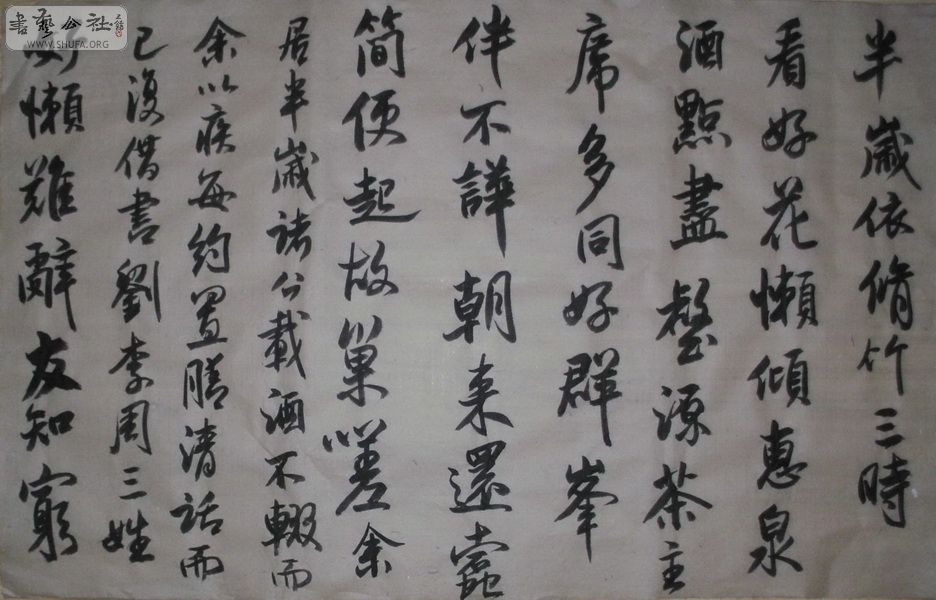 半歲依脩竹三時
看好花懶傾惠泉
酒點盡壑源茶主
席多同好群峯
伴不譁朝來還蠹
簡便起故巢嗟余
居半歲諸公載酒不輟而
余以疾每約置膳清話而
已復借書劉李周三姓
好懶難辭友知窮
書藝公社
WWW.SHUFA.ORG